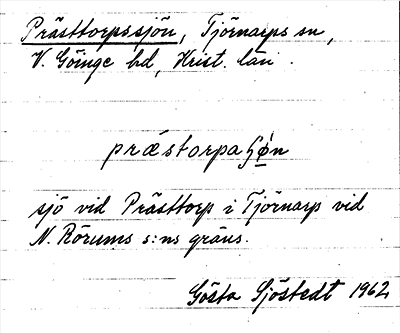 Prästtorpssjön, Tjörnarps sn,
V. Göinge hd, Krist. län.
præstorpaʃøn
sjö vid Prästtorp i Tjörnarp vid
N. Rörums s:ns gräns.
Gösta Sjöstedt 1962